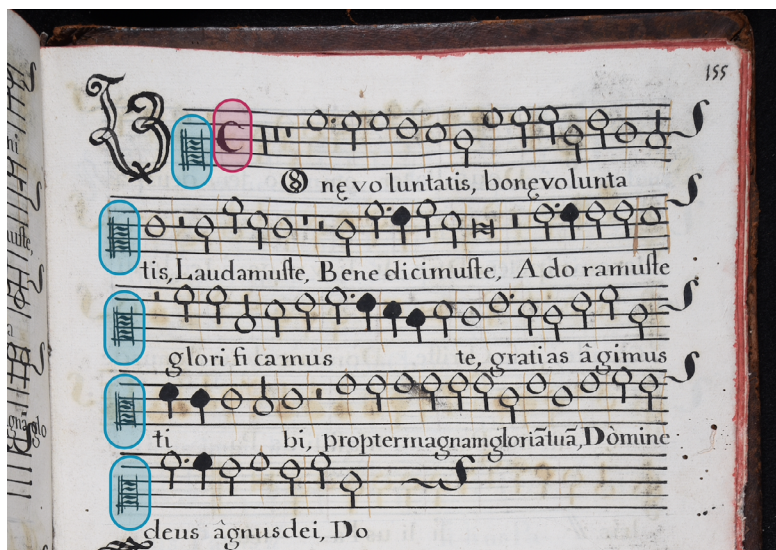 155
B
nę vo luntatis, bonęvolunta
tis, Laudamuste, Bene dicimuste, Ado ramuste
glori fi camus te, gratias âgimus
ti bi, proptermagnamgloriãtuã, Dòmine
deus âgnusdei, Do